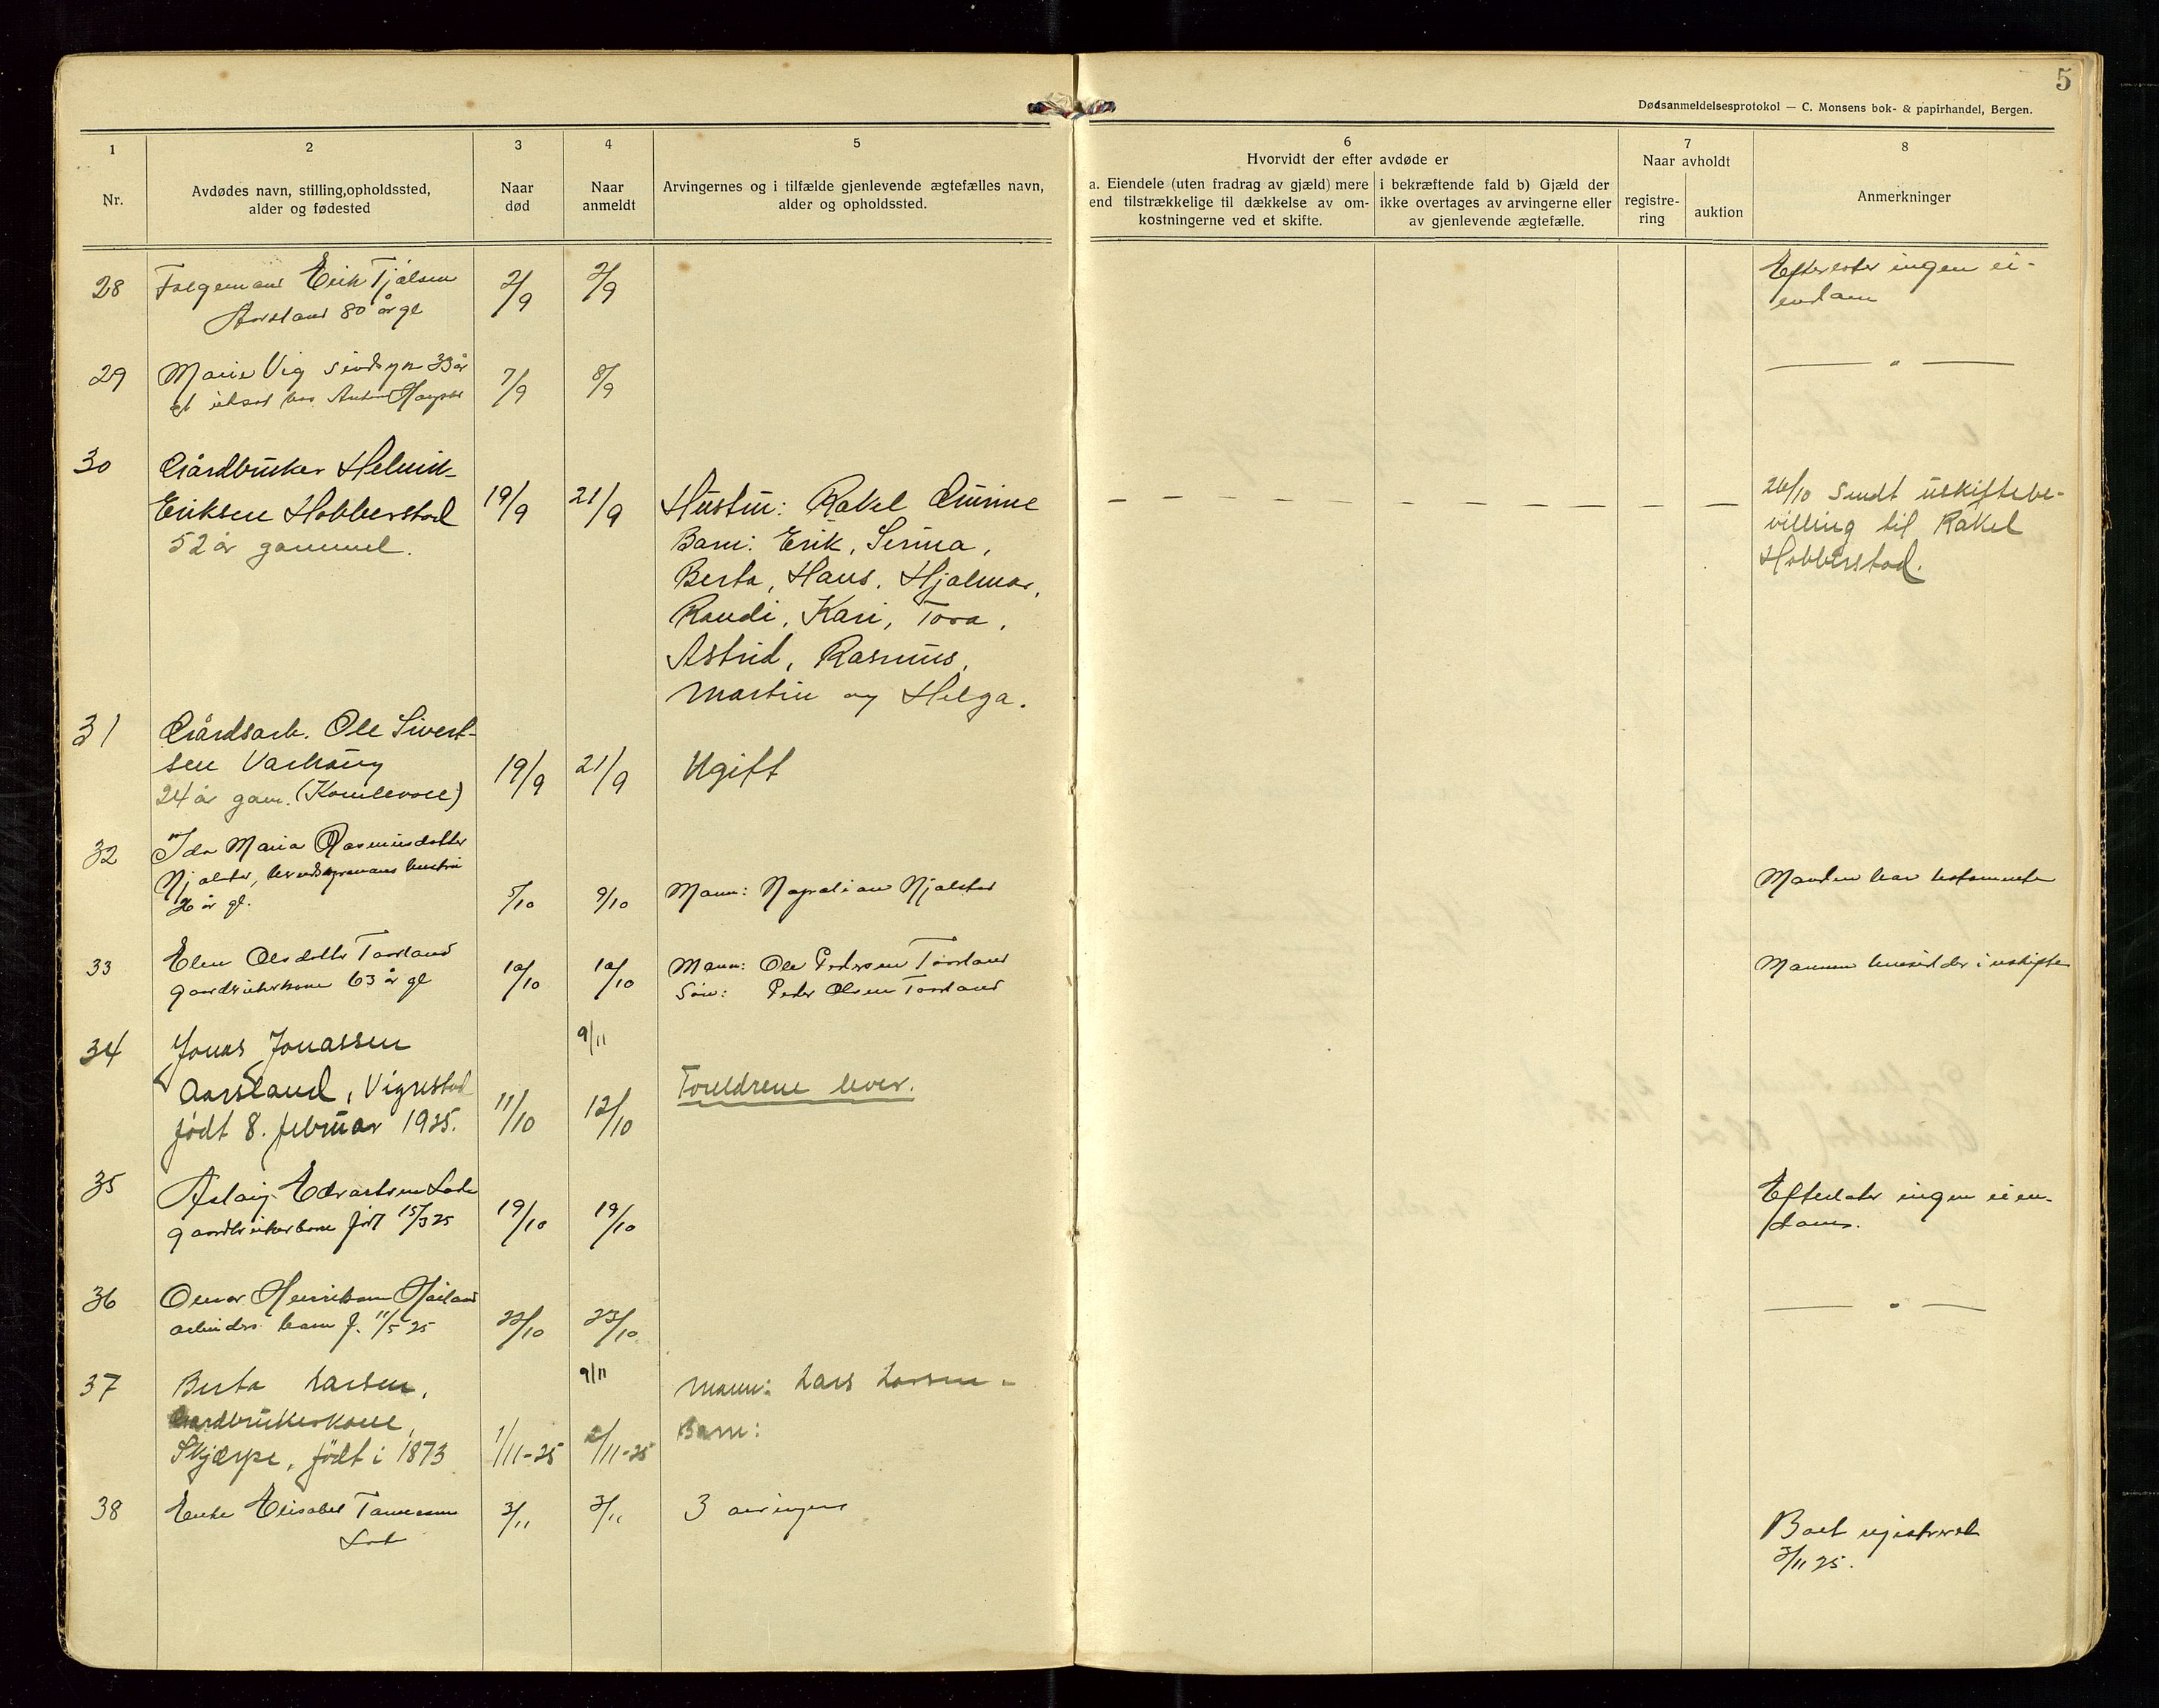 5
Dødsanmeldelsesprotokol — C. Monsens bok- & papirhandel, Bergen.
1
Nr.
2
Avdødes navn, stilling, opholdssted,
alder og fødested
3
Naar
død
4
Naar
anmeldt
5
Arvingernes og i tilfælde gjenlevende ægtefælles navn,
alder og opholdssted.
6
Hvorvidt der efter avdøde er
a. Eiendele (uten fradrag av gjæld) mere
end tilstrækkelige til dækkelse av om-
kostningerne ved et skifte.
i bekræftende fald b) Gjæld der
ikke overtages av arvingerne eller
av gjenlevende ægtefælle.
7
Naar avholdt
registre-
ring
auktion
8
Anmerkninger
28 Erik Tjølsen
Aarsland 80 år gl
2/9 2/9
Efterlater ingen ei-
endom
29 Marie Vig sindsyk 33 år
7/9 8/9
— " —
30 Gårdbruker Helmik
Eriksen Hobberstad
52 år gammel.
19/9 21/9
Hustru: Rakel Gurine
Barn: Erik, Serina,
Berta, Hans, Hjalmar,
Randi, Kari, Tora,
Astrid, Rasmus,
Martin og Helga.
26/10 Sendt uskiftebe-
villing til Rakel
Hobberstad.
31 Gårdsarb. Ole Sivert-
sen Varhaug
24 år gam.
19/9 21/9 Ugift
32 Ida Maria Rasmusdatter
Njølstad,
26 år gl.
5/10 9/10 Mann: Napoleon Njølstad
Manden har testamente
33 Elen Olsdatter Taarland
gaardbrukerkone 63 år gl
10/10 10/10
Mann: Ole Pedersen Taarland
Søn: Peder Olsen Taarland
Mannen hensidder i uskifte
34 Jonas Jonassen
Aarsland, Vigrestad
født 8. februar 1925.
11/10
9/11
12/10
Foreldrene lever.
35 Aslaug Edvartsen Lode
gaardbrukerbarn født 15/3 25
19/10 19/10
Efterlater ingen eien-
dom.
36 Omar Henriksen Høiland
arbeiders barn f. 11/5 25
22/10 23/10
— " —
37 Berta Larsen,
Gardbrukerkone,
Skjærpe, født i 1873
1/11-25
9/11
2/11-25
Mann: Lars Larsen
Barn:
38 Enke Elisabet
3/11 3/11 3 arvinger
Boet registreret
3/11 25.